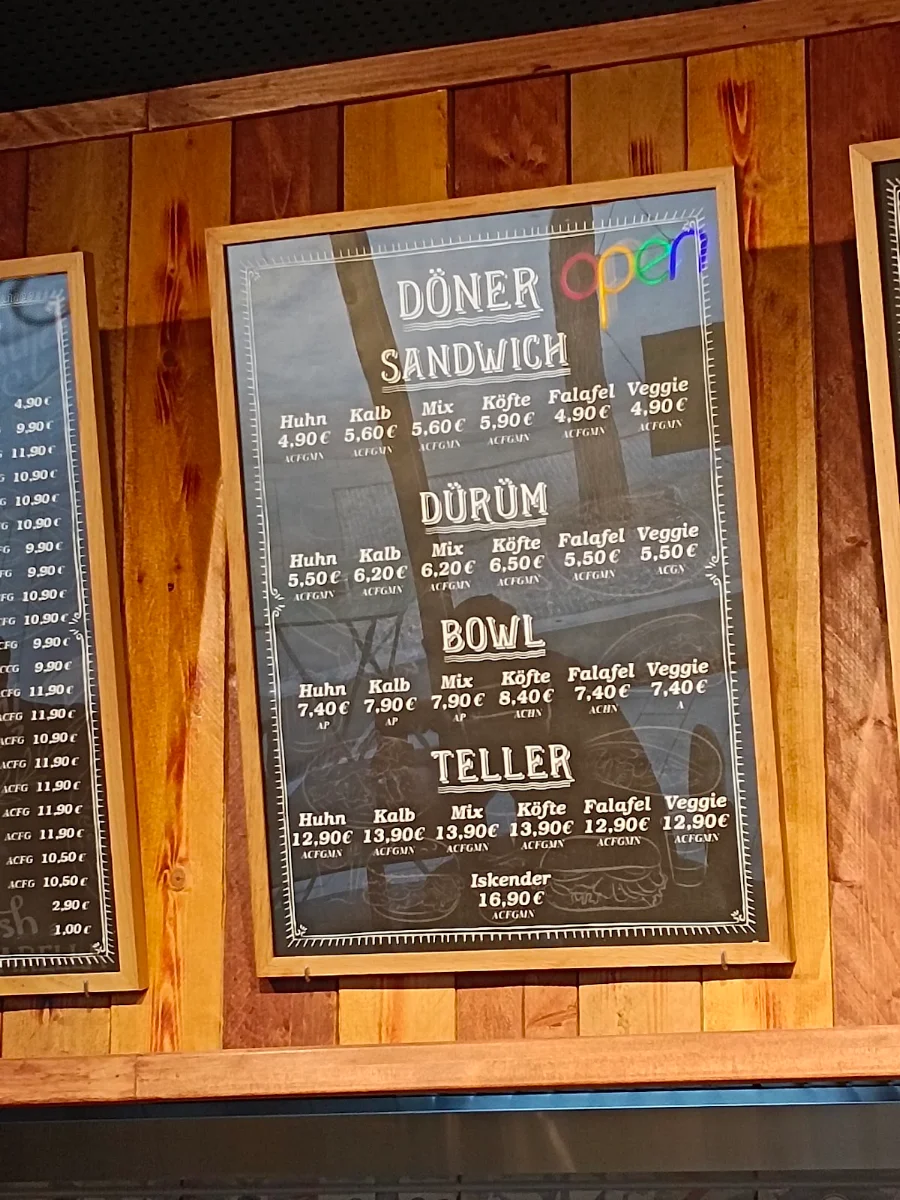 4,90 €
9,90 €
11,90 €
10,90 €
G 10,90 €
G 10,90 €
FG 9,90 €
FG 9,90 €
CFG 10,90 €
CFG 10,90 €
CFG 9,90 €
CCG 9,90 €
ACFG 11,90 €
ACFG 11,90 €
ACFG 10,90 €
ACFG 11,90 €
ACFG 11,90 €
ACFG 11,90 €
ACFG 11,90 €
ACFG 10,50 €
ACFG 10,50 €
2,90 €
1,00 €
open
DÖNER
SANDWICH
Huhn Kalb Mix Köfte Falafel Veggie
4,90 € 5,60 € 5,60 € 5,90 € 4,90 € 4,90 €
ACFGMN ACFGMN ACFGMN ACFGMN ACFGMN ACFGMN
DÜRÜM
Huhn Kalb Mix Köfte Falafel Veggie
5,50 € 6,20 € 6,20 € 6,50 € 5,50 € 5,50 €
ACFGMN ACFGMN ACFGMN ACFGMN ACFGMN ACGN
BOWL
Huhn Kalb Mix Köfte Falafel Veggie
7,40 € 7,90 € 7,90 € 8,40 € 7,40 € 7,40 €
AP AP AP ACHN ACHN A
TELLER
Huhn Kalb Mix Köfte Falafel Veggie
12,90€ 13,90€ 13,90€ 13,90€ 12,90€ 12,90€
ACFGMN ACFGMN ACFGMN ACFGMN ACFGMN ACFGMN
Iskender
16,90 €
ACFGMN